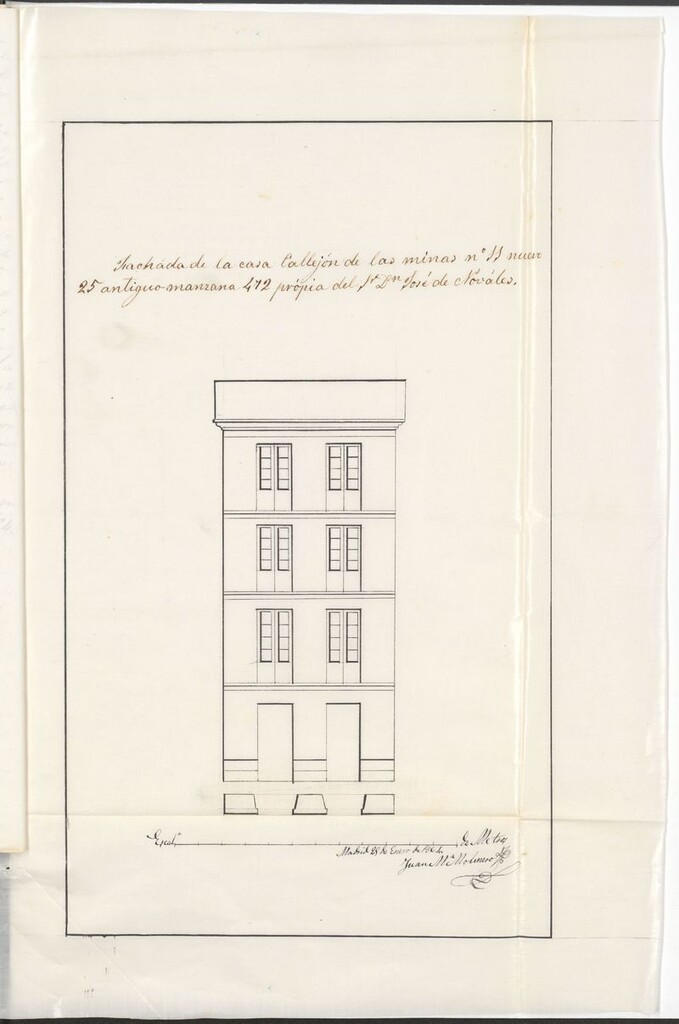 Fachada de la casa Callejón de las minas nº 11 nuevo
25 antiguo manzana 472 própia del Sr Dn José de Nováles.
Escala de Metros
Madrid 28 de Enero de
Juan Mª Molinero